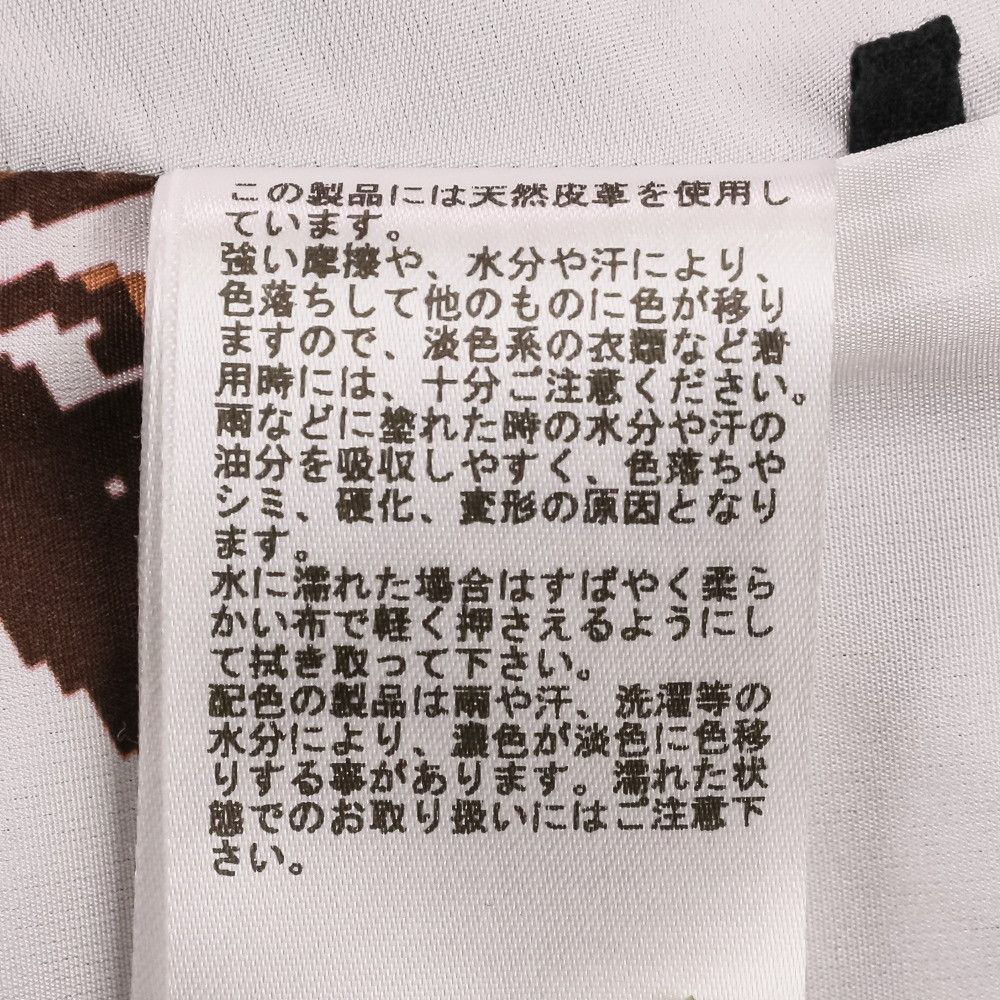 この製品には天然皮革を使用し
ています。
強い摩擦や、水分や汗により、
色落ちして他のものに色が移り
ますので、淡色系の衣類など着
用時には、十分ご注意ください。
雨などに塗れた時の水分や汗の
油分を吸収しやすく、色落ちや
シミ、硬化、変形の原因となり
ます。
水に濡れた場合はすばやく柔ら
かい布で軽く押さえるようにし
て拭き取って下さい。
配色の製品は雨や汗、洗濯等の
水分により、濃色が淡色に色移
りする事があります。濡れた状
態でのお取り扱いにはご注意下
さい。